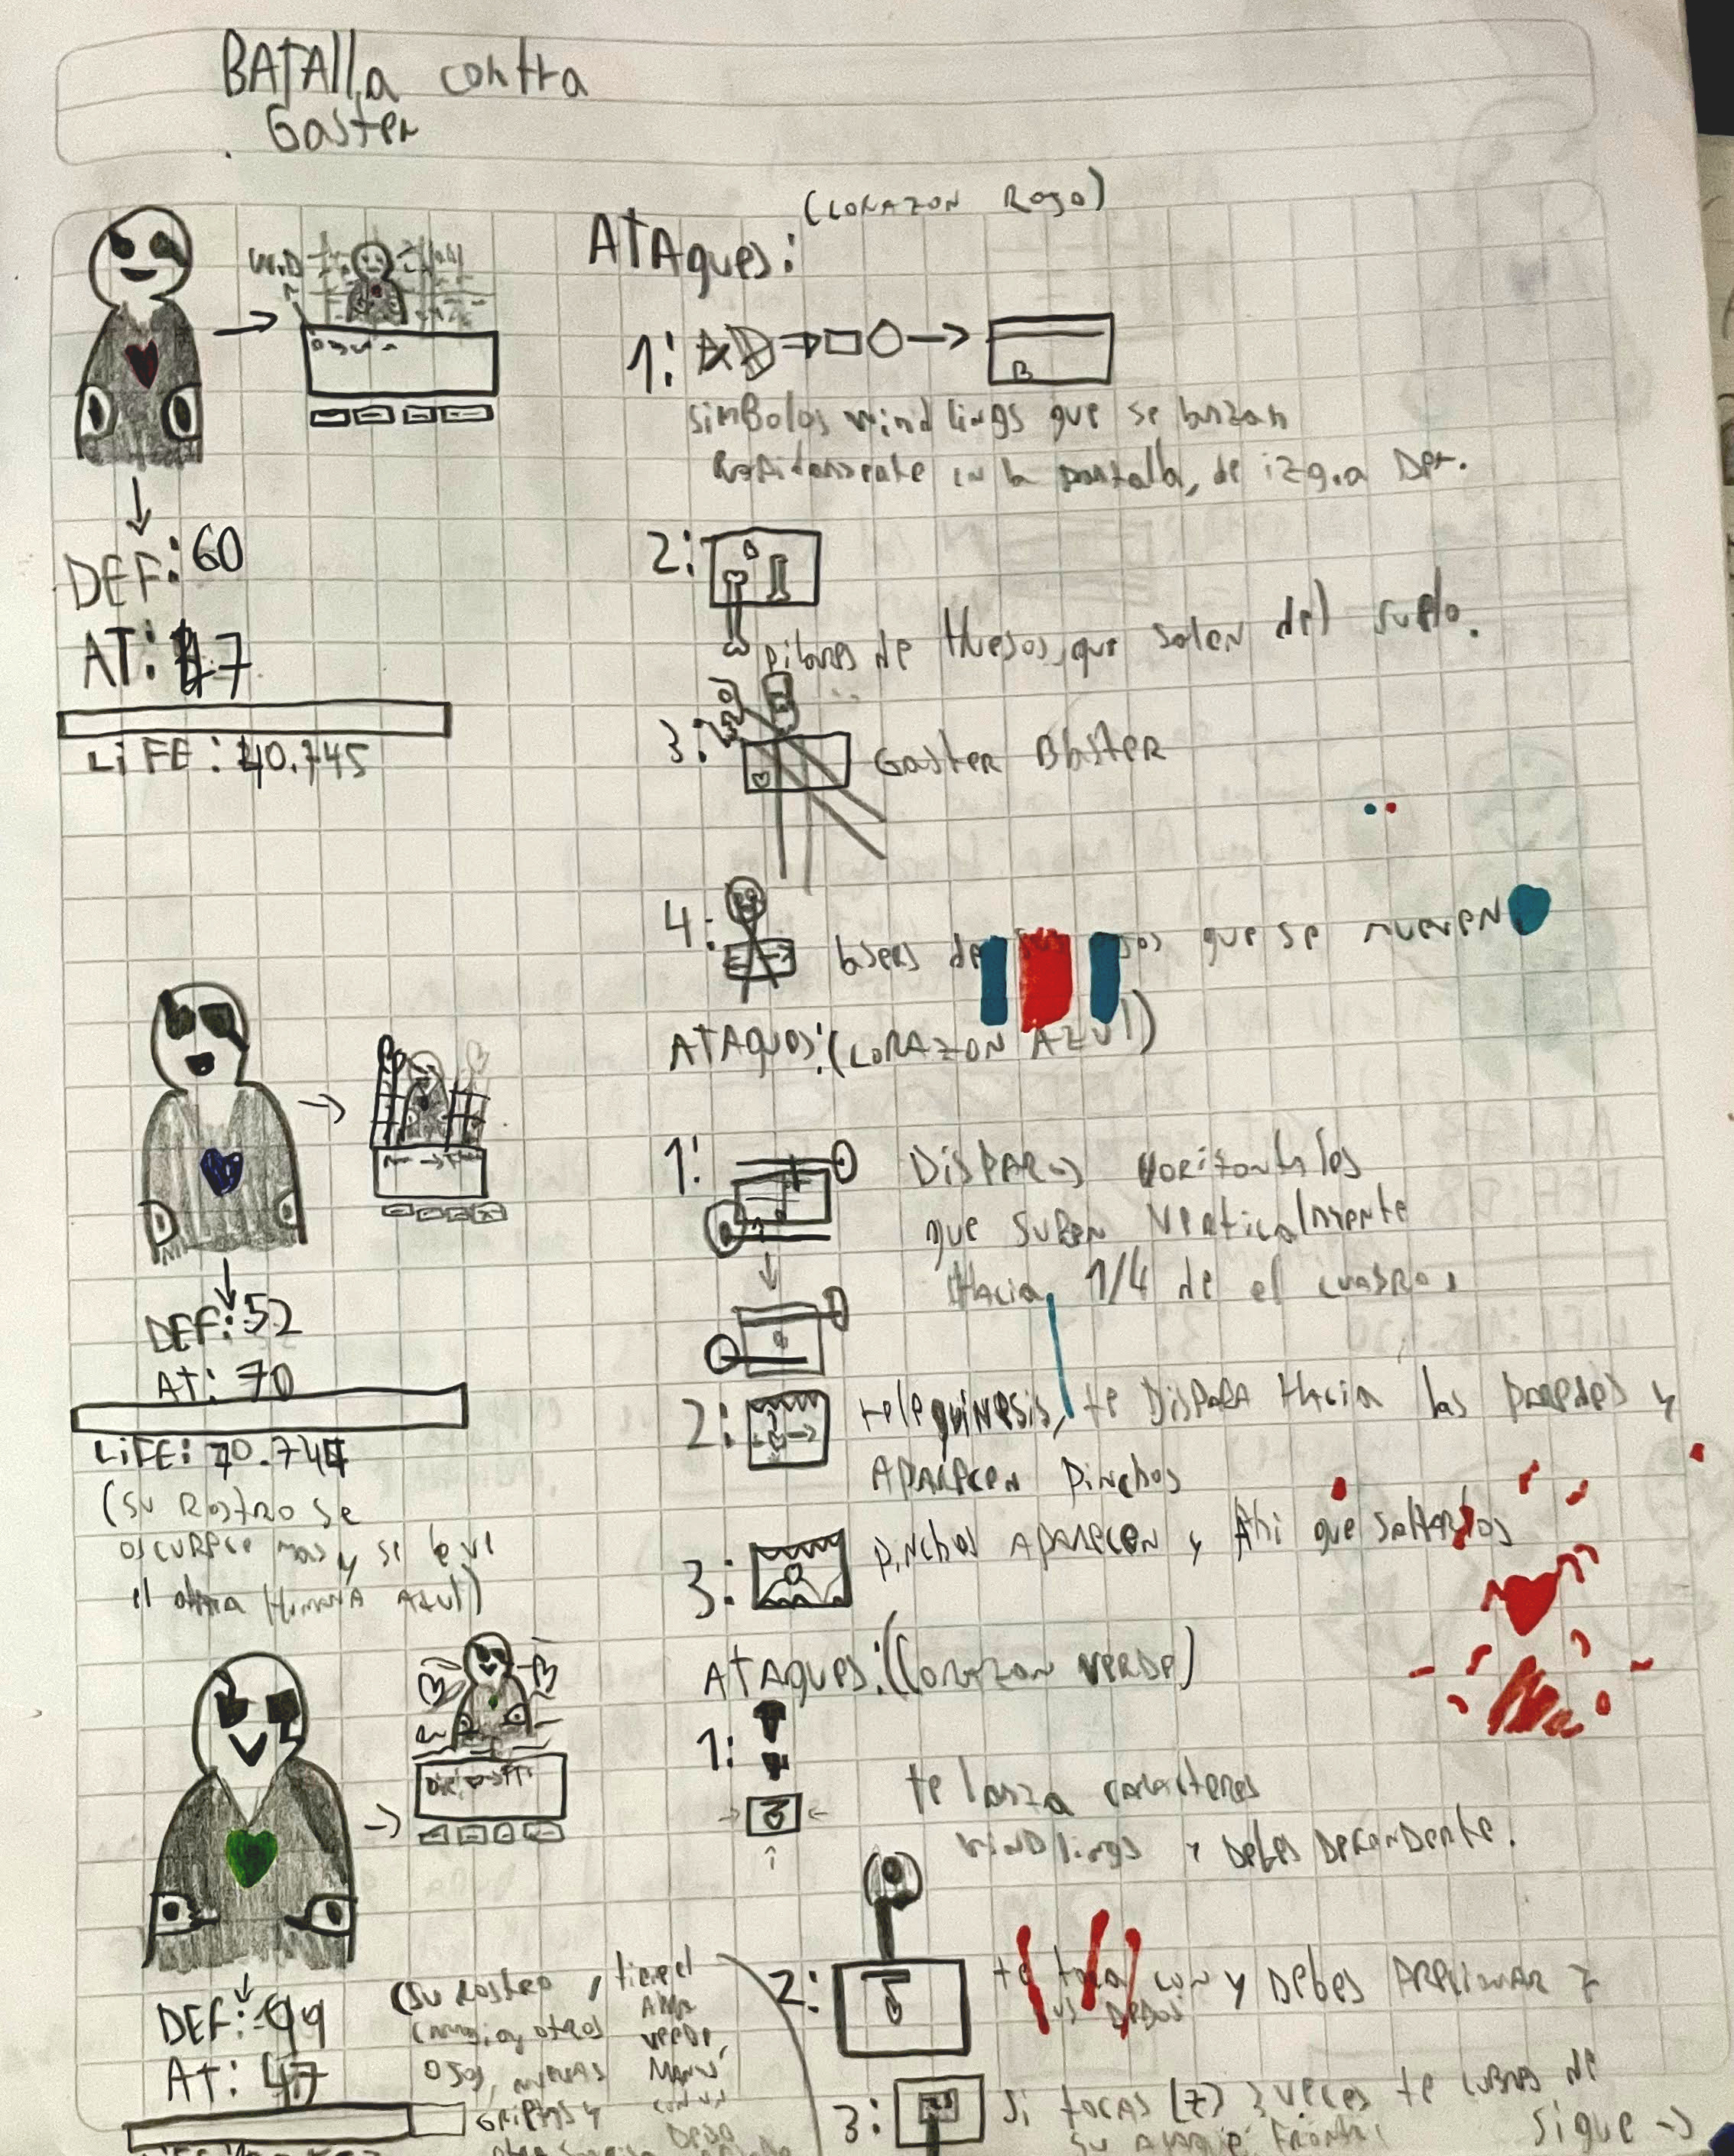 BATAlla contra
Gaster
(CORAZON ROJO)
ATAques:
1:
B
simBolos windlings que se lanzan
Rapidamente en la pantalla, de izq. a Der.
DEF: 60
AT: 47
LiFE: 40.745
2:
pilares de Huesos, que salen del suelo.
3:
GasteR BlasteR
4:
laseRs de que se mueven
ATAques: (CORAZON AZUl)
1:
DisPARos Horizontales
que suben verticalmente
Hacia 1/4 de el cuadro.
DEF: 52
AT: 70
LiFE: 70.744
(su Rostro se
oscurece mas y se le ve
el alma Humana Azul)
2:
telequinesis, te DisPARA Hacia las paredes y
APARecen Pinchos
3:
pinchos APARecen y Ahi que saltarlos
ATAques: (Corazon verde)
1:
te lanza caracteres
windlings y debes Defenderte.
2:
te toca con y Debes Presionar z
sus DeDos
DEF: -99
AT: 47
(su Rostro, tiene el
cambia, otros Alma
verde,
ojos, nuevas Manos
GRietas y con un
Dedo
3:
Si tocas [z] 3 veces te cubres de
su ataque Frontal
Sigue ->